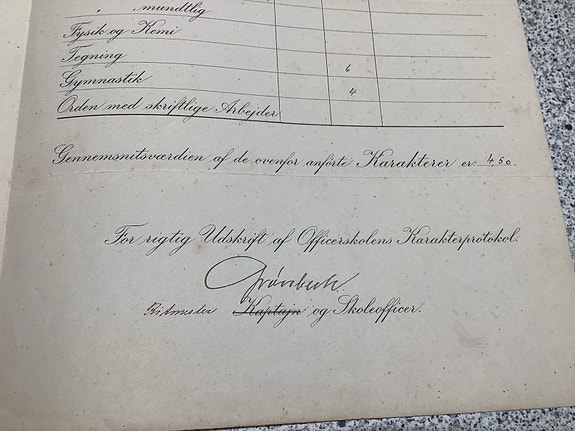 " , mundtlig
Fysik og Kemi
Tegning 6
Gymnastik 4
Orden med skriftlige Arbejder
Gennemsnitsværdien af de ovenfor anførte Karakterer er: 4,50.
For rigtig Udskrift af Officerskolens Karakterprotokol.
Grönbech.
Ritmester Kaptajn og Skoleofficer.